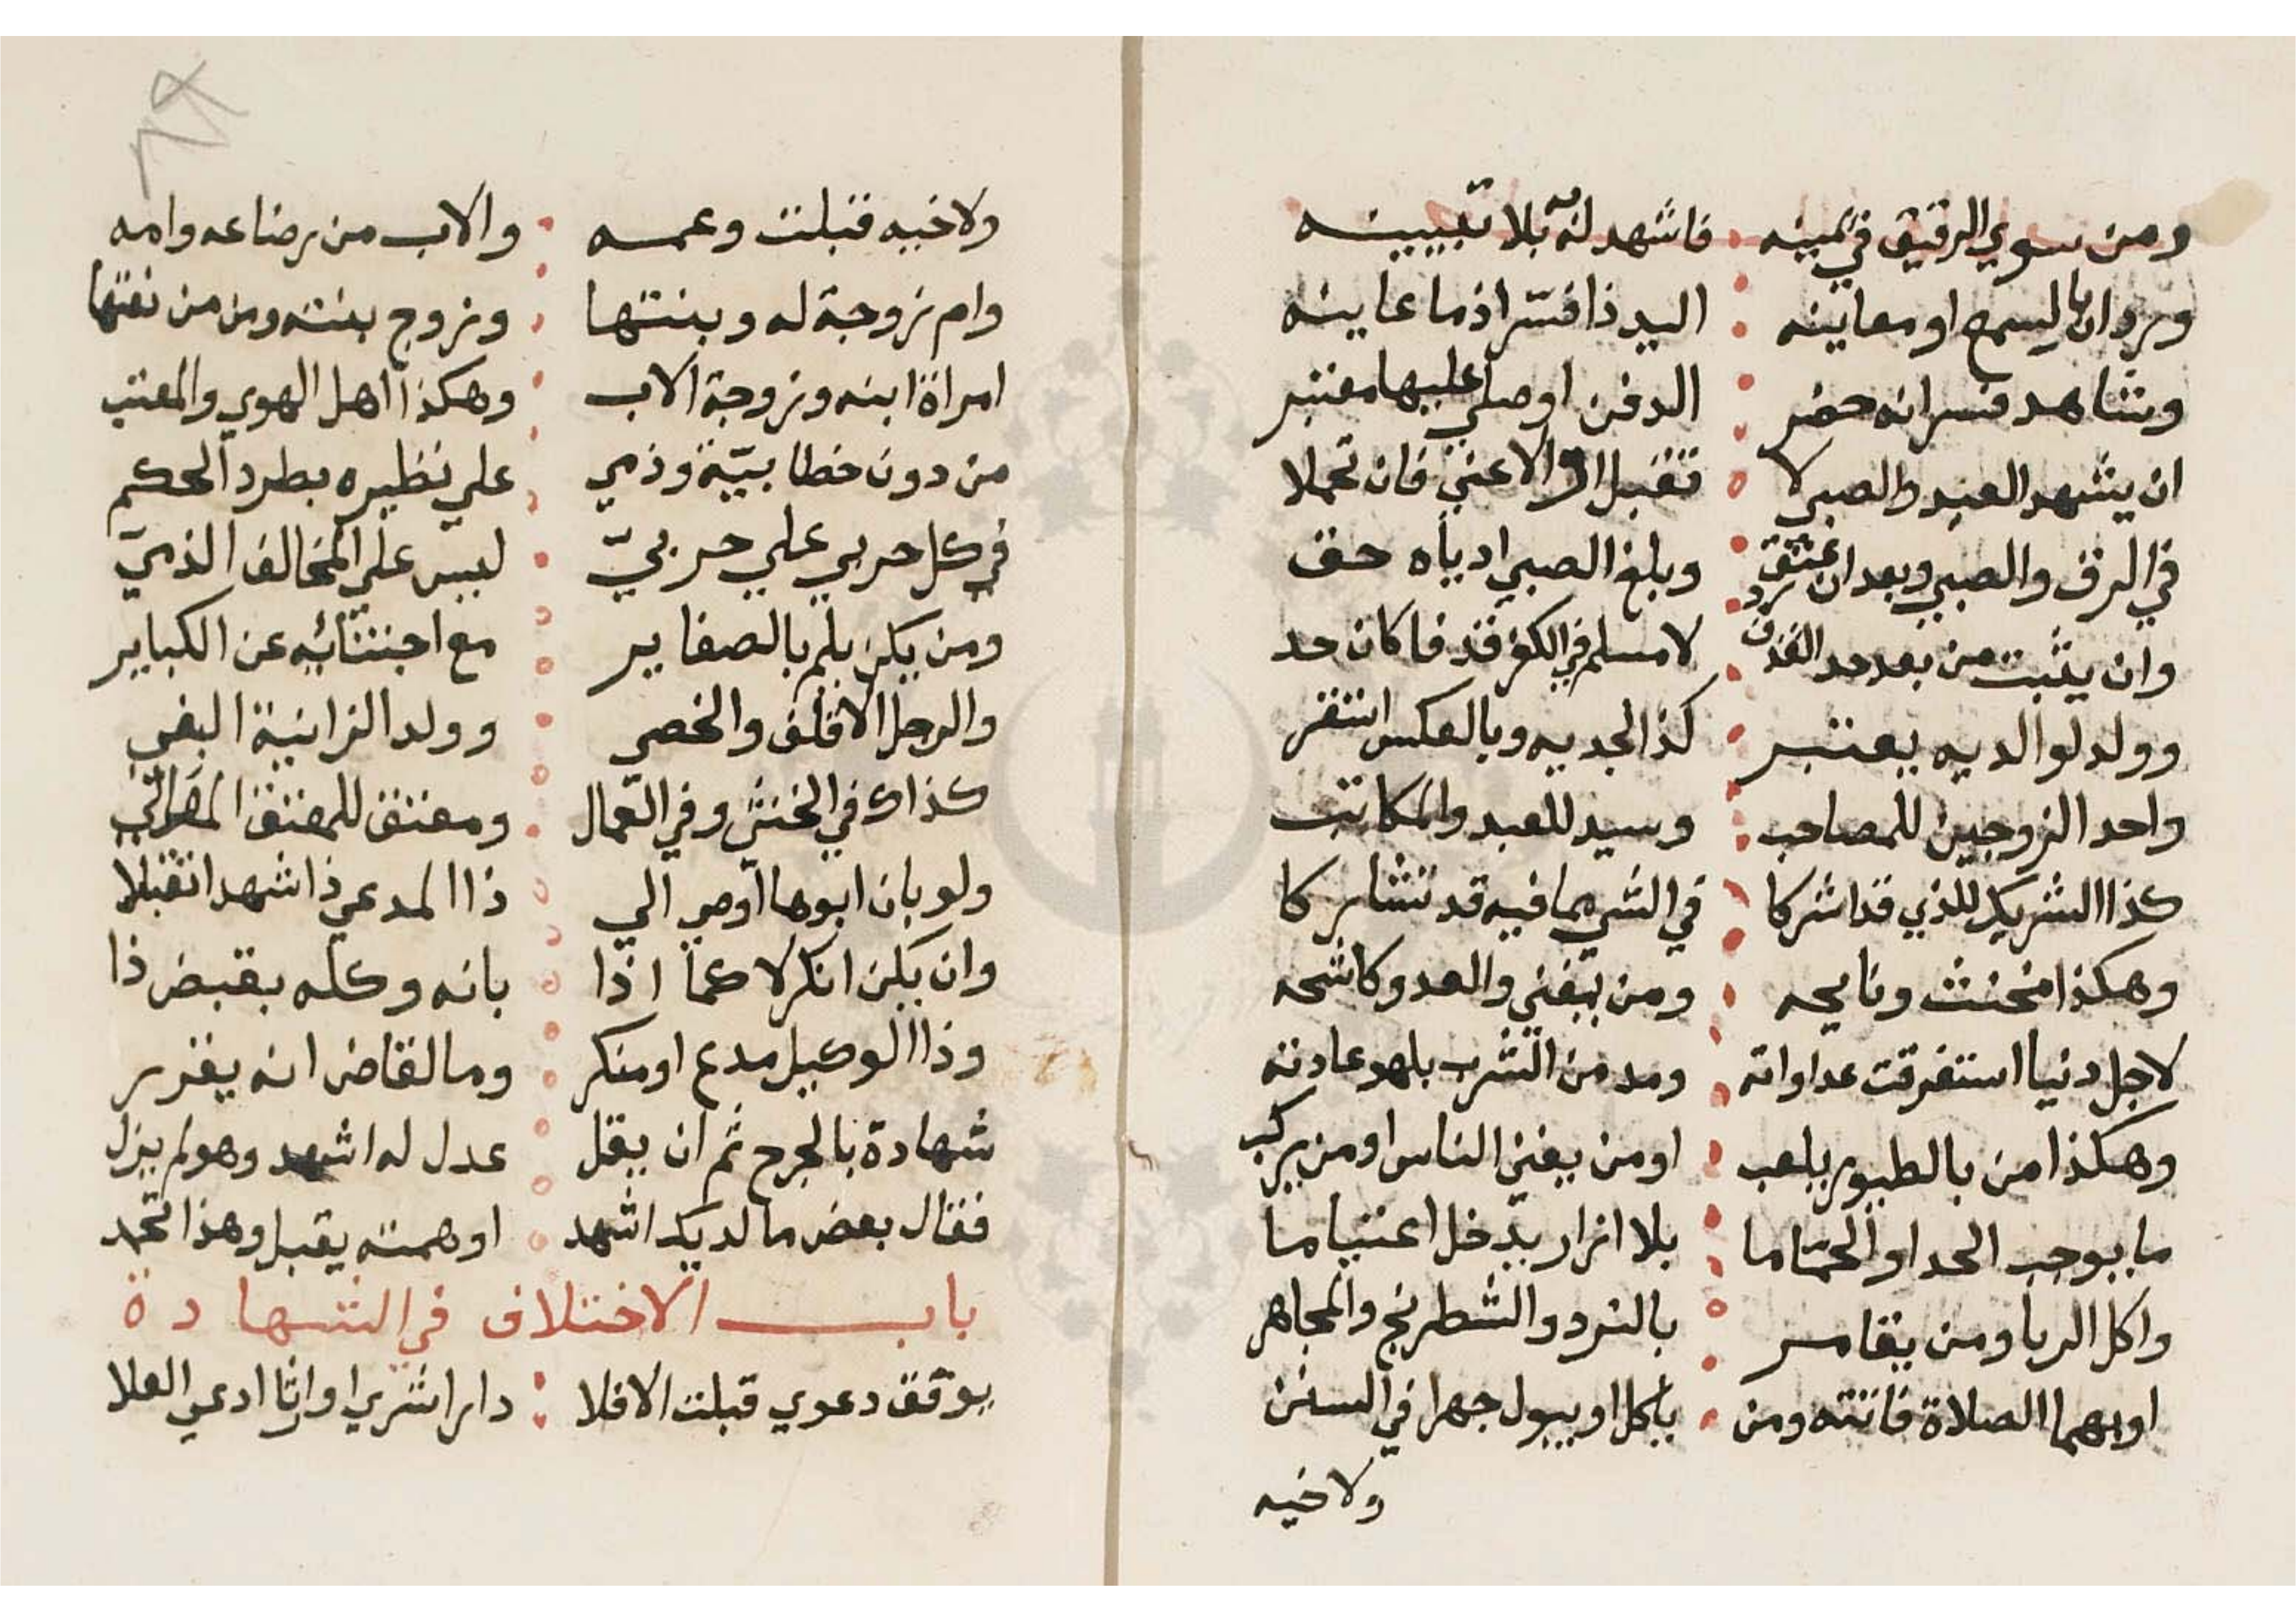 ومن سوي الرقيق في يمينه فاشهد له بلا تبيينه
ويرد ان بالسمع او معاينه اليد ذا فسّر اذ ما عاينه
وشاهد فسر انه حضر الدفن او صلي عليها معتبر
ان يشهد العبد والصبي لا تقبل الا الاعني فان تحملا
في الرق والصبي وبعد ان عتق وبلغ الصبي ادياه حق
وان يثبت من بعد حد القذف ترد لا مسلم في الكفر قذفا كان حد
وولد لوالديه يعتبر كذا لجديه وبالعكس استقر
واحد الزوجين للمصاحب وسيد للعبد والمكاتب
كذا الشريك للذي قد اشركا في الشي مما فيه قد تشاركا
وهكذا مخنث ونايحه ومن يغني والعدو كاشحه
لاجل دنيا استفرقت عداواته ومدمن الشرب بلهو عادته
وهكذا من بالطيور يلعب او من يغني الناس او من يركب
ما يوجب الحد او الحمّاما بلا ازار يدخل اعتياما
واكل الربا ومن يقامر بالنرد والشطرنج والمجاهر
او بهما الصلاة فاتته ومن ياكل او يبول جهرا في السنن
ولاخيه
ولاخيه قبلت وعمه والاب من رضاعه وامه
وام زوجة له وبنتها وزوج بنته ومن من نعتها
امراة ابنه وزوجة الاب وهكذا اهل الهوي والمعتب
من دون خطابيّة وذمي علي نظيره بطرد الحكم
في كل حربي علي حربيّ ليس علي المخالف الذميّ
ومن يكن يلم بالصغاير مع اجتنابه عن الكباير
والرجل الاقلف والخصي وولد الزانية البغي
كذاك في الخنثي وفي العمال ومعتق للمعتق
ولو بان ابوها اوصي الي ذا المدعي ذا شهدا تقبلا
وان يكن انكر لا كما اذا بانه وكله بقبض ذا
وذا الوكيل مدع او منكر وما لقاض انه يقرر
شهادة بالجرح ثم ان يقل عدل له اشهد وهو لم يزل
فقال بعض ما لديك اشهد اوهمته يقبل وهذا تجد
باب الاختلاف في الشهادة
يوفق دعوي قبلت الا فلا دارا شري او ارثا ادعي العلا